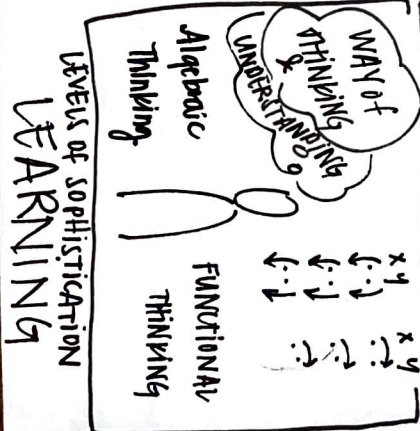 WAY OF
THINKING
&
UNDERSTANDING
x y
x y
Algebraic
Thinking
FUNCTIONAL
THINKING
LEVELS OF SOPHISTICATION
LEARNING